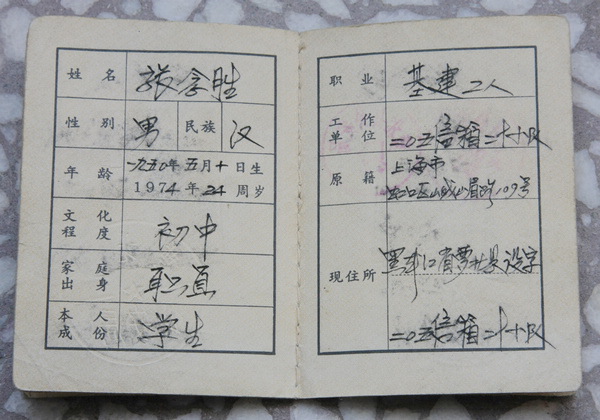 姓名 张念胜
性别 男 民族 汉
年龄 一九五〇年五月十日生
1974年24周岁
文化程度 初中
家庭出身 职员
本人成份 学生
职业 基建工人
工作单位 二〇五信箱二十小队
原籍 上海市
109号
现住所 黑龙江省
二〇五信箱二十小队